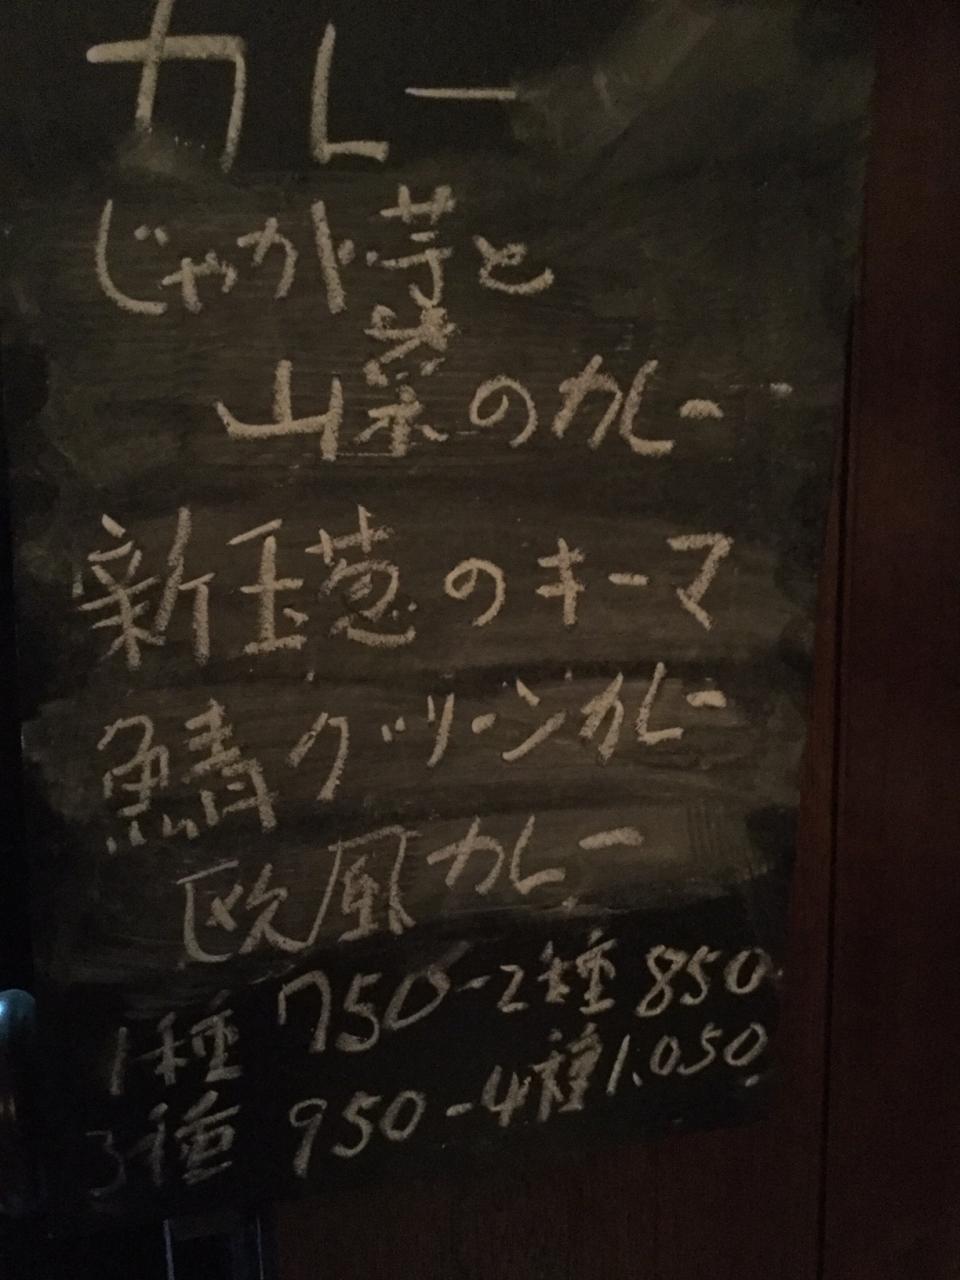 カレー
じゃが芋と
山菜のカレー
新玉葱のキーマ
鯖グリーンカレー
欧風カレー
1種 750-2種 850
3種 950-4種 1.050